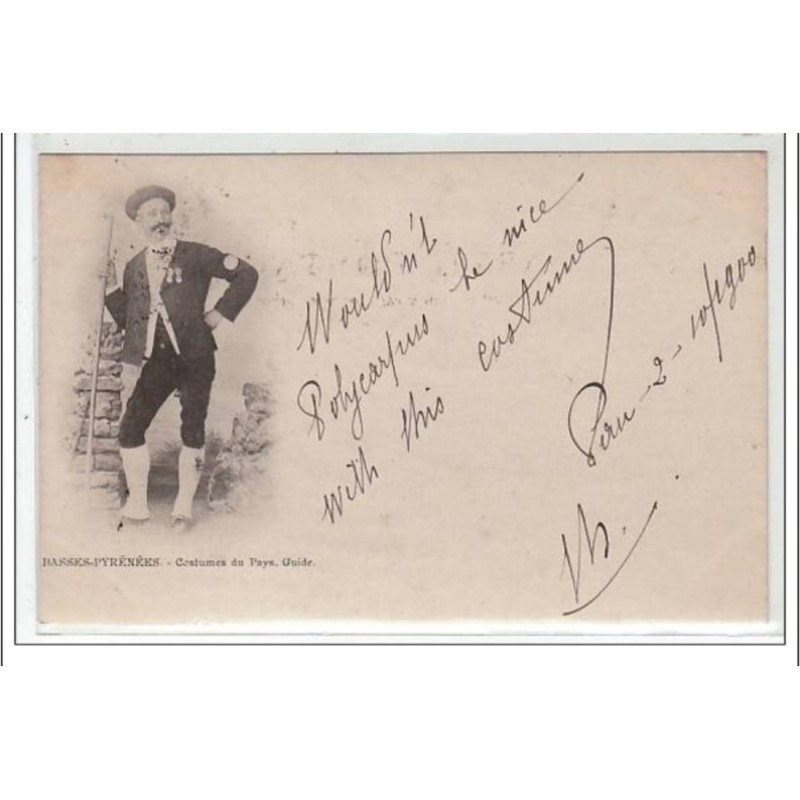 Would n't
Polycarpus be nice
with this costume
Pau - 2 - 10/1900
Th.
BASSES-PYRÉNÉES. - Costumes du Pays. Guide.